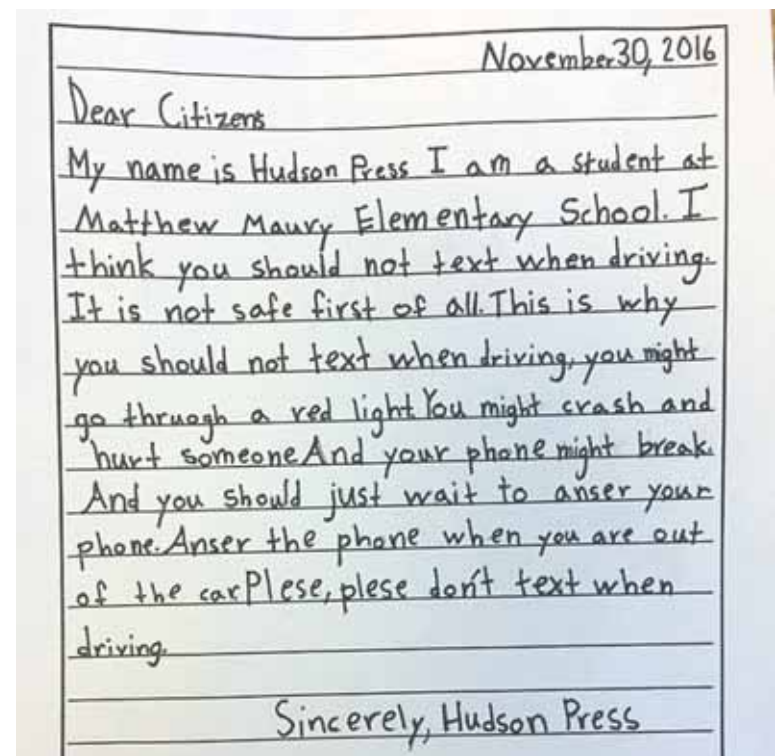 November 30, 2016
Dear Citizens
My name is Hudson Press I am a student at
Matthew Maury Elementary School. I
think you should not text when driving.
It is not safe first of all. This is why
you should not text when driving, you might
go thruogh a red light You might crash and
hurt someone And your phone might break.
And you should just wait to anser your
phone. Anser the phone when you are out
of the car Plese, plese don't text when
driving.
Sincerely, Hudson Press